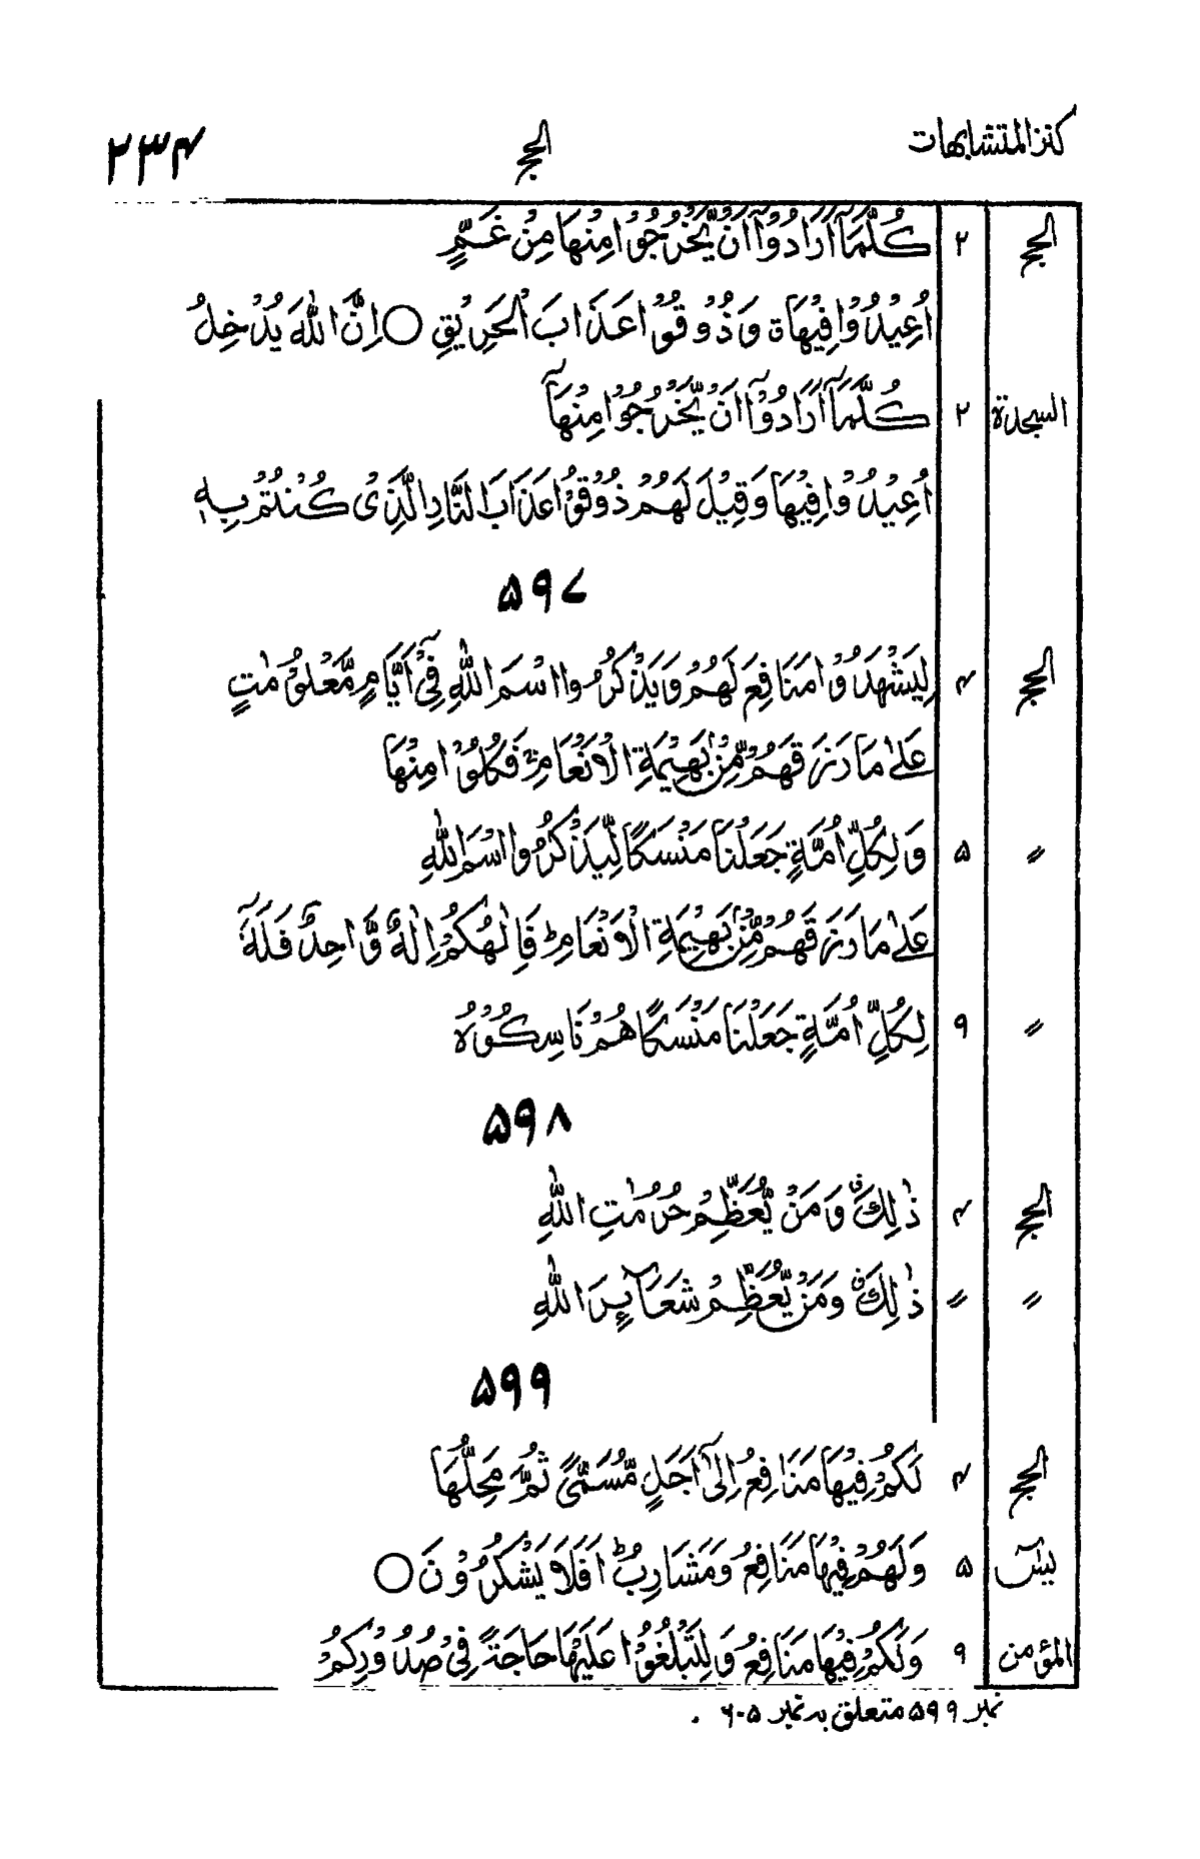 كنز المتشابهات الحج ۲۳۴
الحج ۲ كُلَّمَآ اَرَادُوْٓا اَنْ يَّخْرُجُوْا مِنْهَا مِنْ غَمٍّ
اُعِيْدُوْا فِيْهَا ق وَذُوْقُوْا عَذَابَ الْحَرِيْقِ ○ اِنَّ اللّٰهَ يُدْخِلُ
السجدة ۲ كُلَّمَآ اَرَادُوْٓا اَنْ يَّخْرُجُوْا مِنْهَآ
اُعِيْدُوْا فِيْهَا وَقِيْلَ لَهُمْ ذُوْقُوْا عَذَابَ النَّارِ الَّذِىْ كُنْتُمْ بِهٖ
۵۹۷
الحج ۴ لِيَشْهَدُوْا مَنَافِعَ لَهُمْ وَيَذْكُرُوا اسْمَ اللّٰهِ فِىْٓ اَيَّامٍ مَّعْلُوْمٰتٍ
عَلٰى مَا رَزَقَهُمْ مِّنْۢ بَهِيْمَةِ الْاَنْعَامِ ج فَكُلُوْا مِنْهَا
〃 ۵ وَلِكُلِّ اُمَّةٍ جَعَلْنَا مَنْسَكًا لِّيَذْكُرُوا اسْمَ اللّٰهِ
عَلٰى مَا رَزَقَهُمْ مِّنْۢ بَهِيْمَةِ الْاَنْعَامِ ط فَاِلٰهُكُمْ اِلٰهٌ وَّاحِدٌ فَلَهٗٓ
〃 ۹ لِكُلِّ اُمَّةٍ جَعَلْنَا مَنْسَكًا هُمْ نَاسِكُوْهُ
۵۹۸
الحج ۴ ذٰلِكَ ق وَمَنْ يُّعَظِّمْ حُرُمٰتِ اللّٰهِ
〃 〃 ذٰلِكَ ق وَمَنْ يُّعَظِّمْ شَعَآئِرَ اللّٰهِ
۵۹۹
الحج ۴ لَكُمْ فِيْهَا مَنَافِعُ اِلٰٓى اَجَلٍ مُّسَمًّى ثُمَّ مَحِلُّهَا
يٰسٓ ۵ وَلَهُمْ فِيْهَا مَنَافِعُ وَمَشَارِبُ ط اَفَلَا يَشْكُرُوْنَ ○
المؤمن ۹ وَلَكُمْ فِيْهَا مَنَافِعُ وَلِتَبْلُغُوْا عَلَيْهَا حَاجَةً فِىْ صُدُوْرِكُمْ
نمبر ۵۹۹ متعلق بہ نمبر ۶۰۵ .